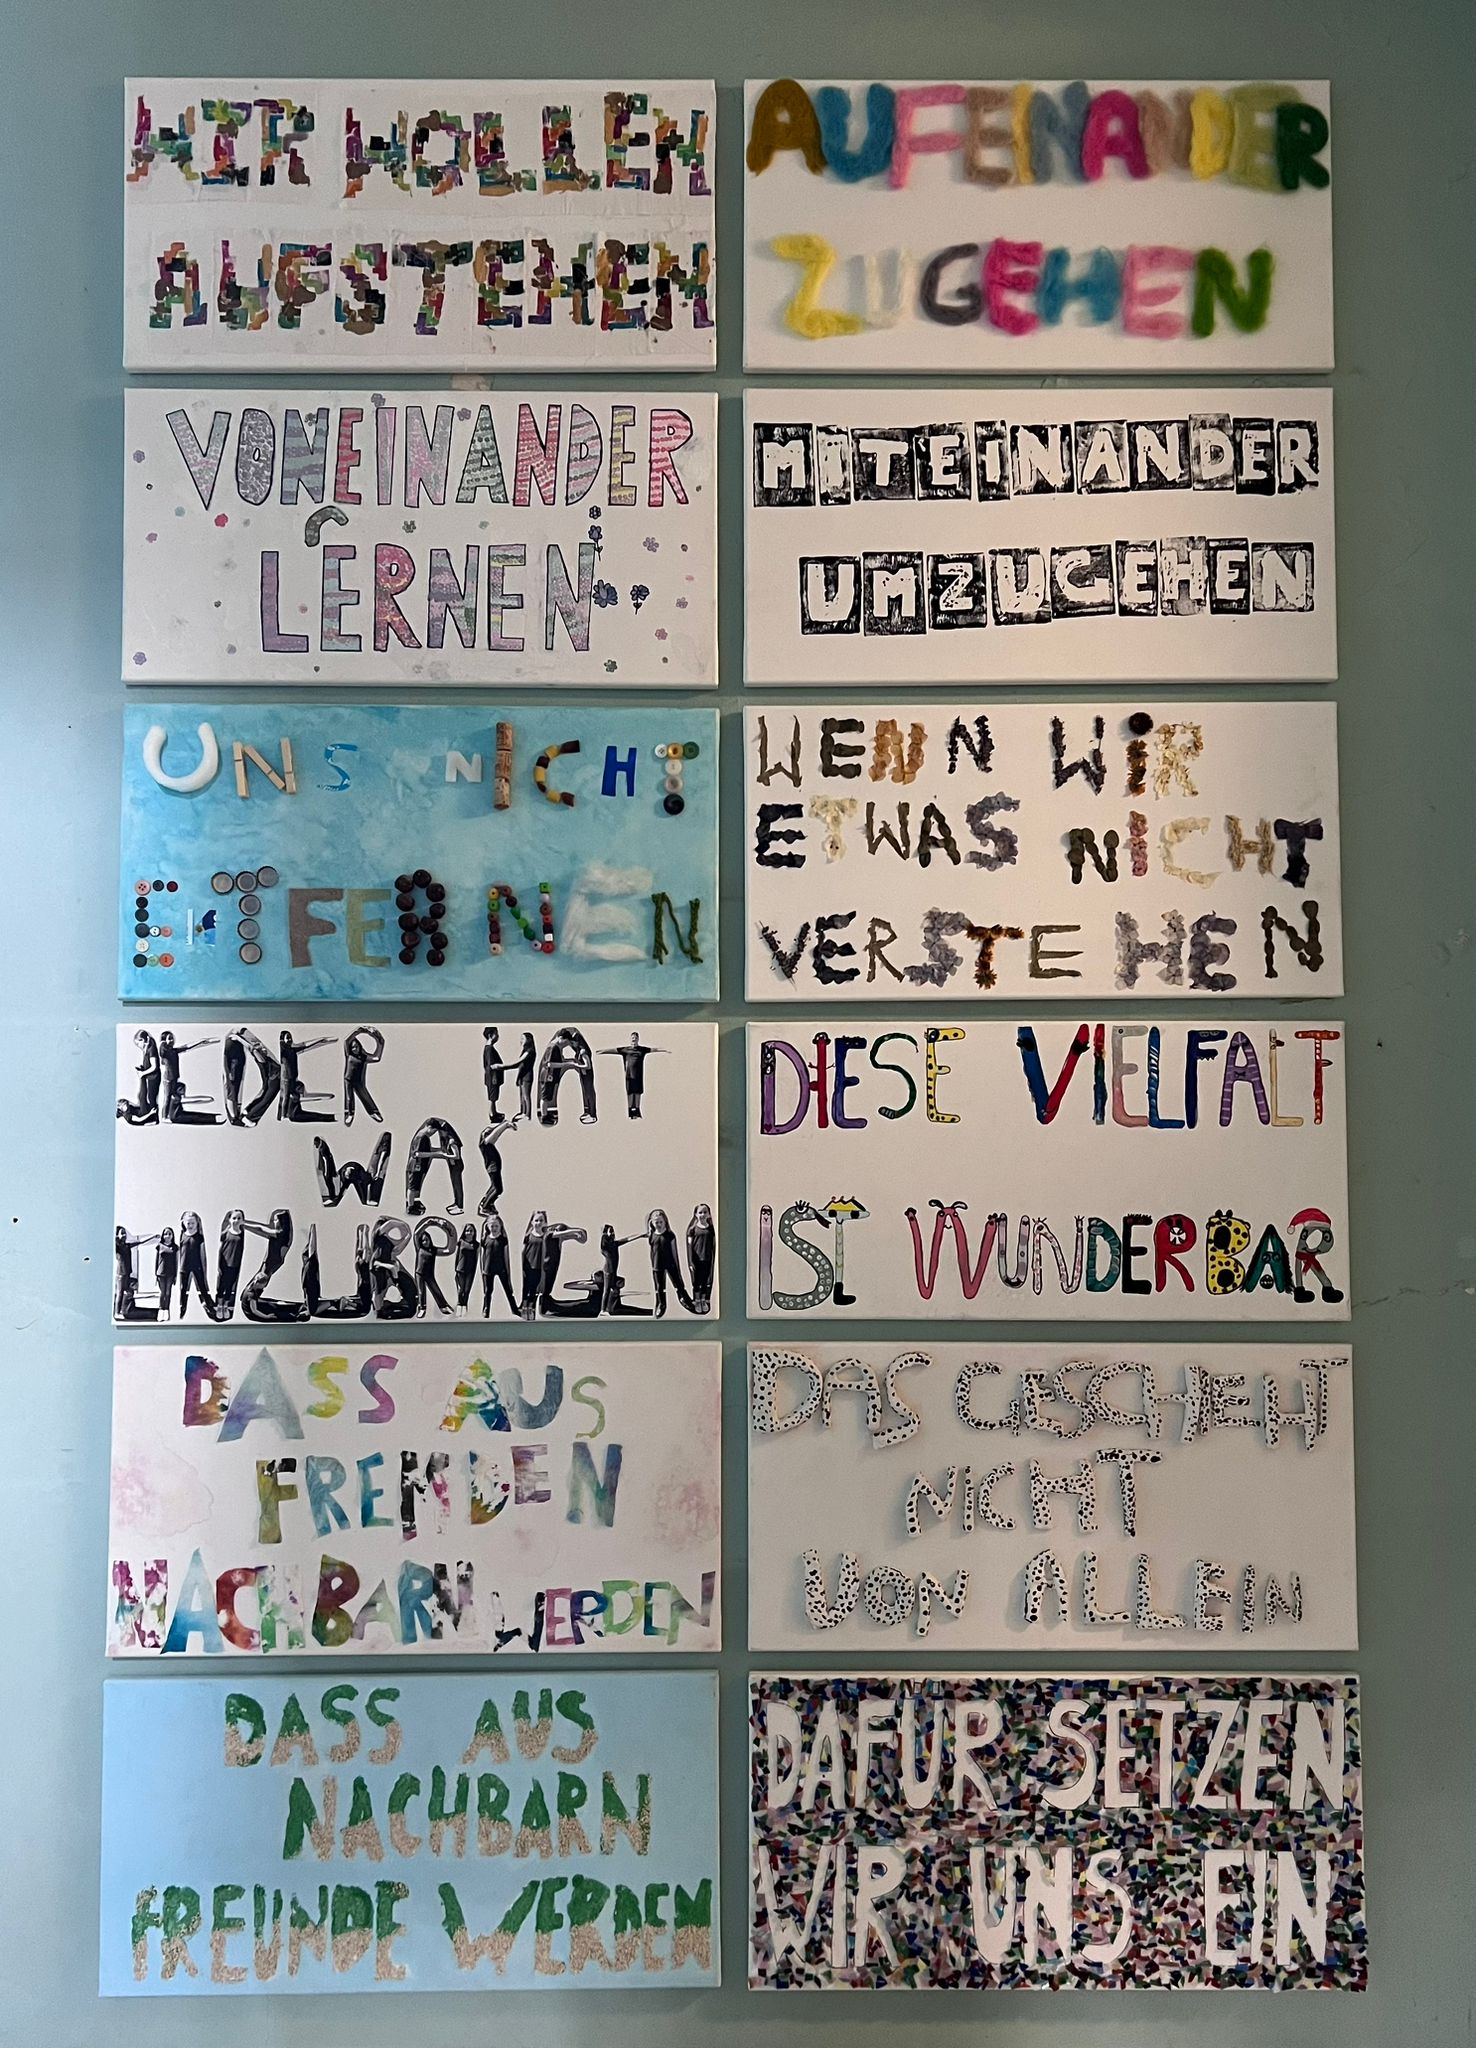 WIR WOLLEN
AUFSTEHEN
AUFEINANDER
ZUGEHEN
VONEINANDER
LERNEN
MITEINANDER
UMZUGEHEN
UNS NICHT
ENTFERNEN
WENN WIR
ETWAS NICHT
VERSTEHEN
JEDER HAT
WAS
EINZUBRINGEN
DIESE VIELFALT
IST WUNDERBAR
DASS AUS
FREMDEN
NACHBARN WERDEN
DAS GESCHIEHT
NICHT
VON ALLEIN
DASS AUS
NACHBARN
FREUNDE WERDEN
DAFÜR SETZEN
WIR UNS EIN